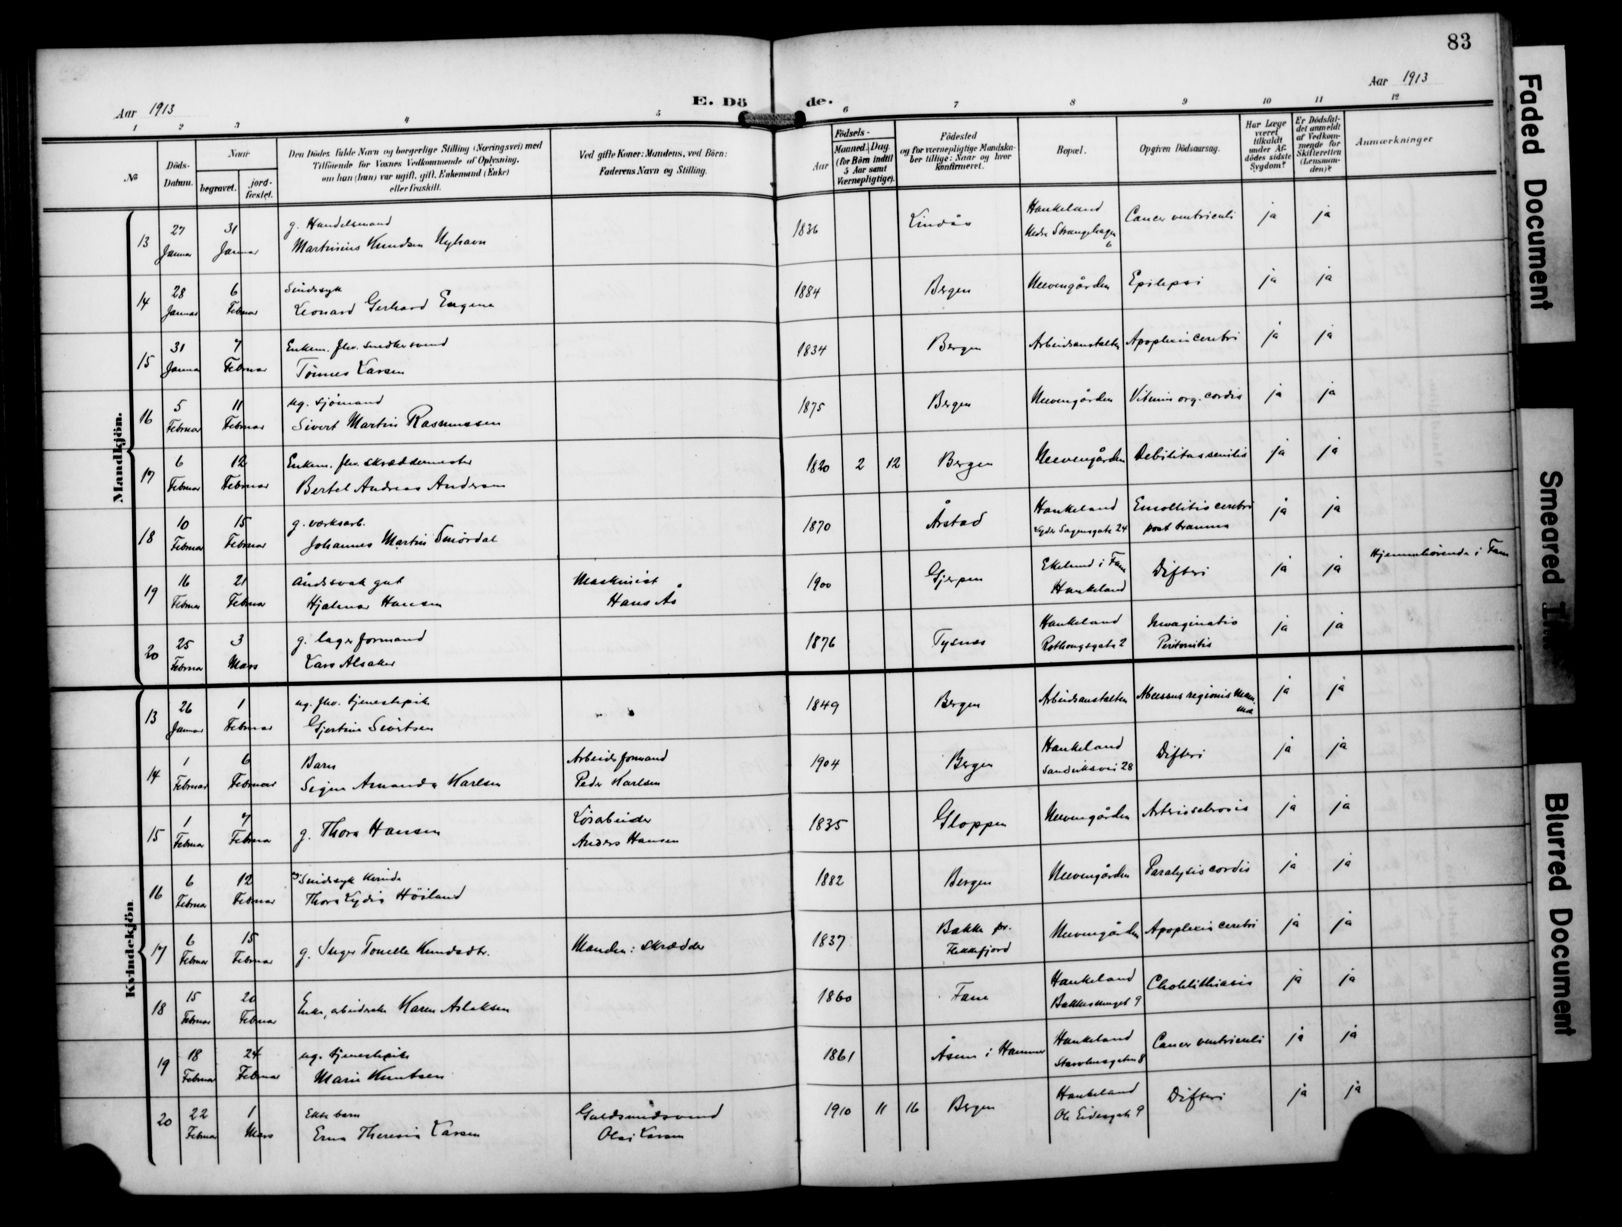 83
Aar 1913
E. Dö de.
Aar 1913
1 2 3 4 5 6 7 8 9 10 11 12
№
Döds-Datum.
Naar
begravet.
jord-fæstet.
Den Dödes fulde Navn og borgerlige Stilling (Næringsvei) med
Tilföiende for Voxnes Vedkommende af Oplysning,
om han (hun) var ugift, gift, Enkemand (Enke)
eller fraskilt.
Ved gifte Koner: Mandens, ved Börn:
Faderens Navn og Stilling.
Födsels-
Aar
Maaned. Dag.
(for Börn indtil
5 Aar samt
Værnepligtige).
Födested
og for værnepligtige Mandska-
ber tillige: Naar og hvor
Konfirmeret.
Bopæl.
Opgiven Dödsaarsag.
Har Læge
været
tilkaldt
under Af-
dödes sidste
Sygdom?
Er Dödsfal-
det anmeldt
af Vedkom-
mende for
Skifteretten
(Lensman-
den)?
Anmærkninger
Mandkjön.
13 27 Januar 31 Januar g. Handelsmand 1836 Lindås Haukeland Cancer ventriculi ja ja
Martinius Knudsen Nyhavn Nedre Strangehagen 6
14 28 Januar 6 Februar Sindssyk 1884 Bergen Neevengården Epilepsi ja ja
Leonard Gerhard Eugene
15 31 Januar 7 Februar Enkem. fhv. snedkersvend 1834 Bergen Arbeidsanstalten Apoplexia cerebri ja ja
Tönnes Larsen
16 5 Februar 11 Februar ug. sjömand 1875 Bergen Neevengården Vitium org. cordis ja ja
Sivert Martin Rasmussen
17 6 Februar 12 Februar Enkem. fhv. skræddermester 1820 2 12 Bergen Neevengården Debilitas senilis ja ja
Bertel Andreas Andersen
18 10 Februar 15 Februar g. verksarb. 1870 Årstad Haukeland Emollitio cerebri ja ja
Johannes Martin Smördal Lyder Sagensgate 24 post trauma
19 16 Februar 21 Februar Åndssvak gut Maskinist 1900 Gjerpen Ekelund i Fane Difteri ja ja Hjemmehörende i Fane
Hjalmar Hansen Hans Ås Haukeland
20 25 Februar 3 Mars g. lagerformand 1876 Tysnes Haukeland Invaginatio ja ja
Lars Alsaker Rothaugsgate 2 Peritonitis
Kvindekjön
13 26 Januar 1 Februar ug. fhv. tjenestepike 1849 Bergen Arbeidsanstalten Abcessus regionis ja ja
Gjertine Sivertsen
14 1 Februar 6 Februar Barn Arbeidsformand 1904 Bergen Haukeland Difteri ja ja
Signe Amanda Karlsen Peder Karlsen Sandviksvei 28
15 1 Februar 7 Februar g. Thora Hansen Lösarbeider 1835 Gloppen Neevengården Arteriosclerosis ja ja
Anders Hansen
16 6 Februar 12 Februar Sindssyk kvinde 1882 Bergen Neevengården Paralysis cordis ja ja
Thora Lydia Höiland
17 6 Februar 15 Februar g. Inger Tonette Knudsdtr. Manden: skrædder 1837 Bakke pr. Flekkefjord Neevengården Apoplexia cerebri ja ja
18 15 Februar 20 Februar Enke, arbeiderske Karen Aslaksen 1860 Fane Haukeland Cholelithiasis ja ja
Bakkesmuget 9
19 18 Februar 24 Februar ug. tjenestepike 1861 Åsene i Hammer Haukeland Cancer ventriculi ja ja
Marie Knutsen
20 22 Februar 1 Mars Ekte barn Guldsmedsvend 1910 11 16 Bergen Haukeland Difteri ja ja
Erna Theresia Larsen Olai Larsen Ole Eidesgate 9
Faded Document
Smeared
Blurred Document